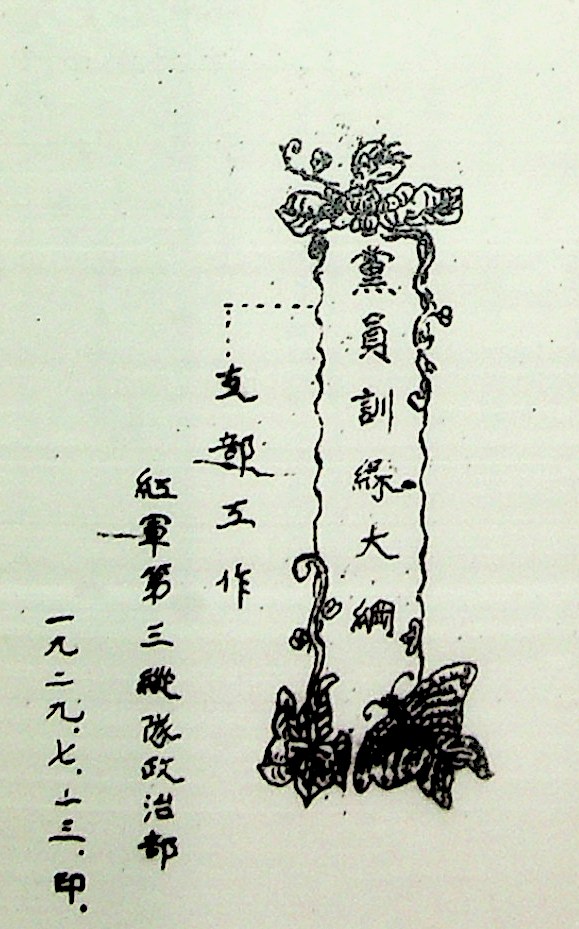 黨員訓練大綱
支部工作
紅軍第三縱隊政治部
一九二九.七.十三.印.